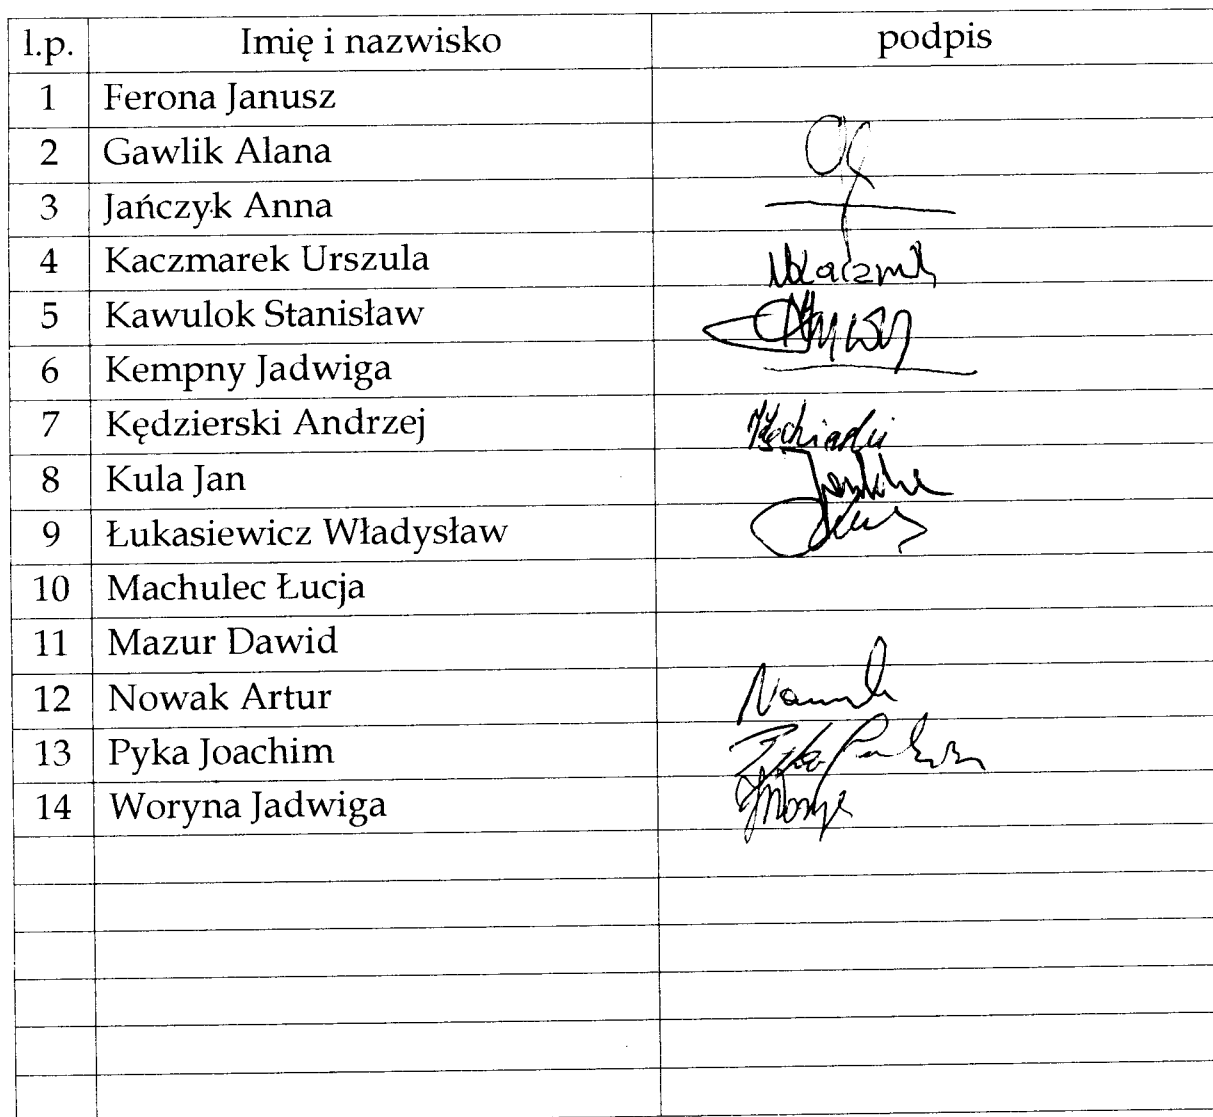 l.p. Imię i nazwisko podpis
1 Ferona Janusz
2 Gawlik Alana
3 Jańczyk Anna
4 Kaczmarek Urszula
5 Kawulok Stanisław
6 Kempny Jadwiga
7 Kędzierski Andrzej
8 Kula Jan
9 Łukasiewicz Władysław
10 Machulec Łucja
11 Mazur Dawid
12 Nowak Artur
13 Pyka Joachim
14 Woryna Jadwiga